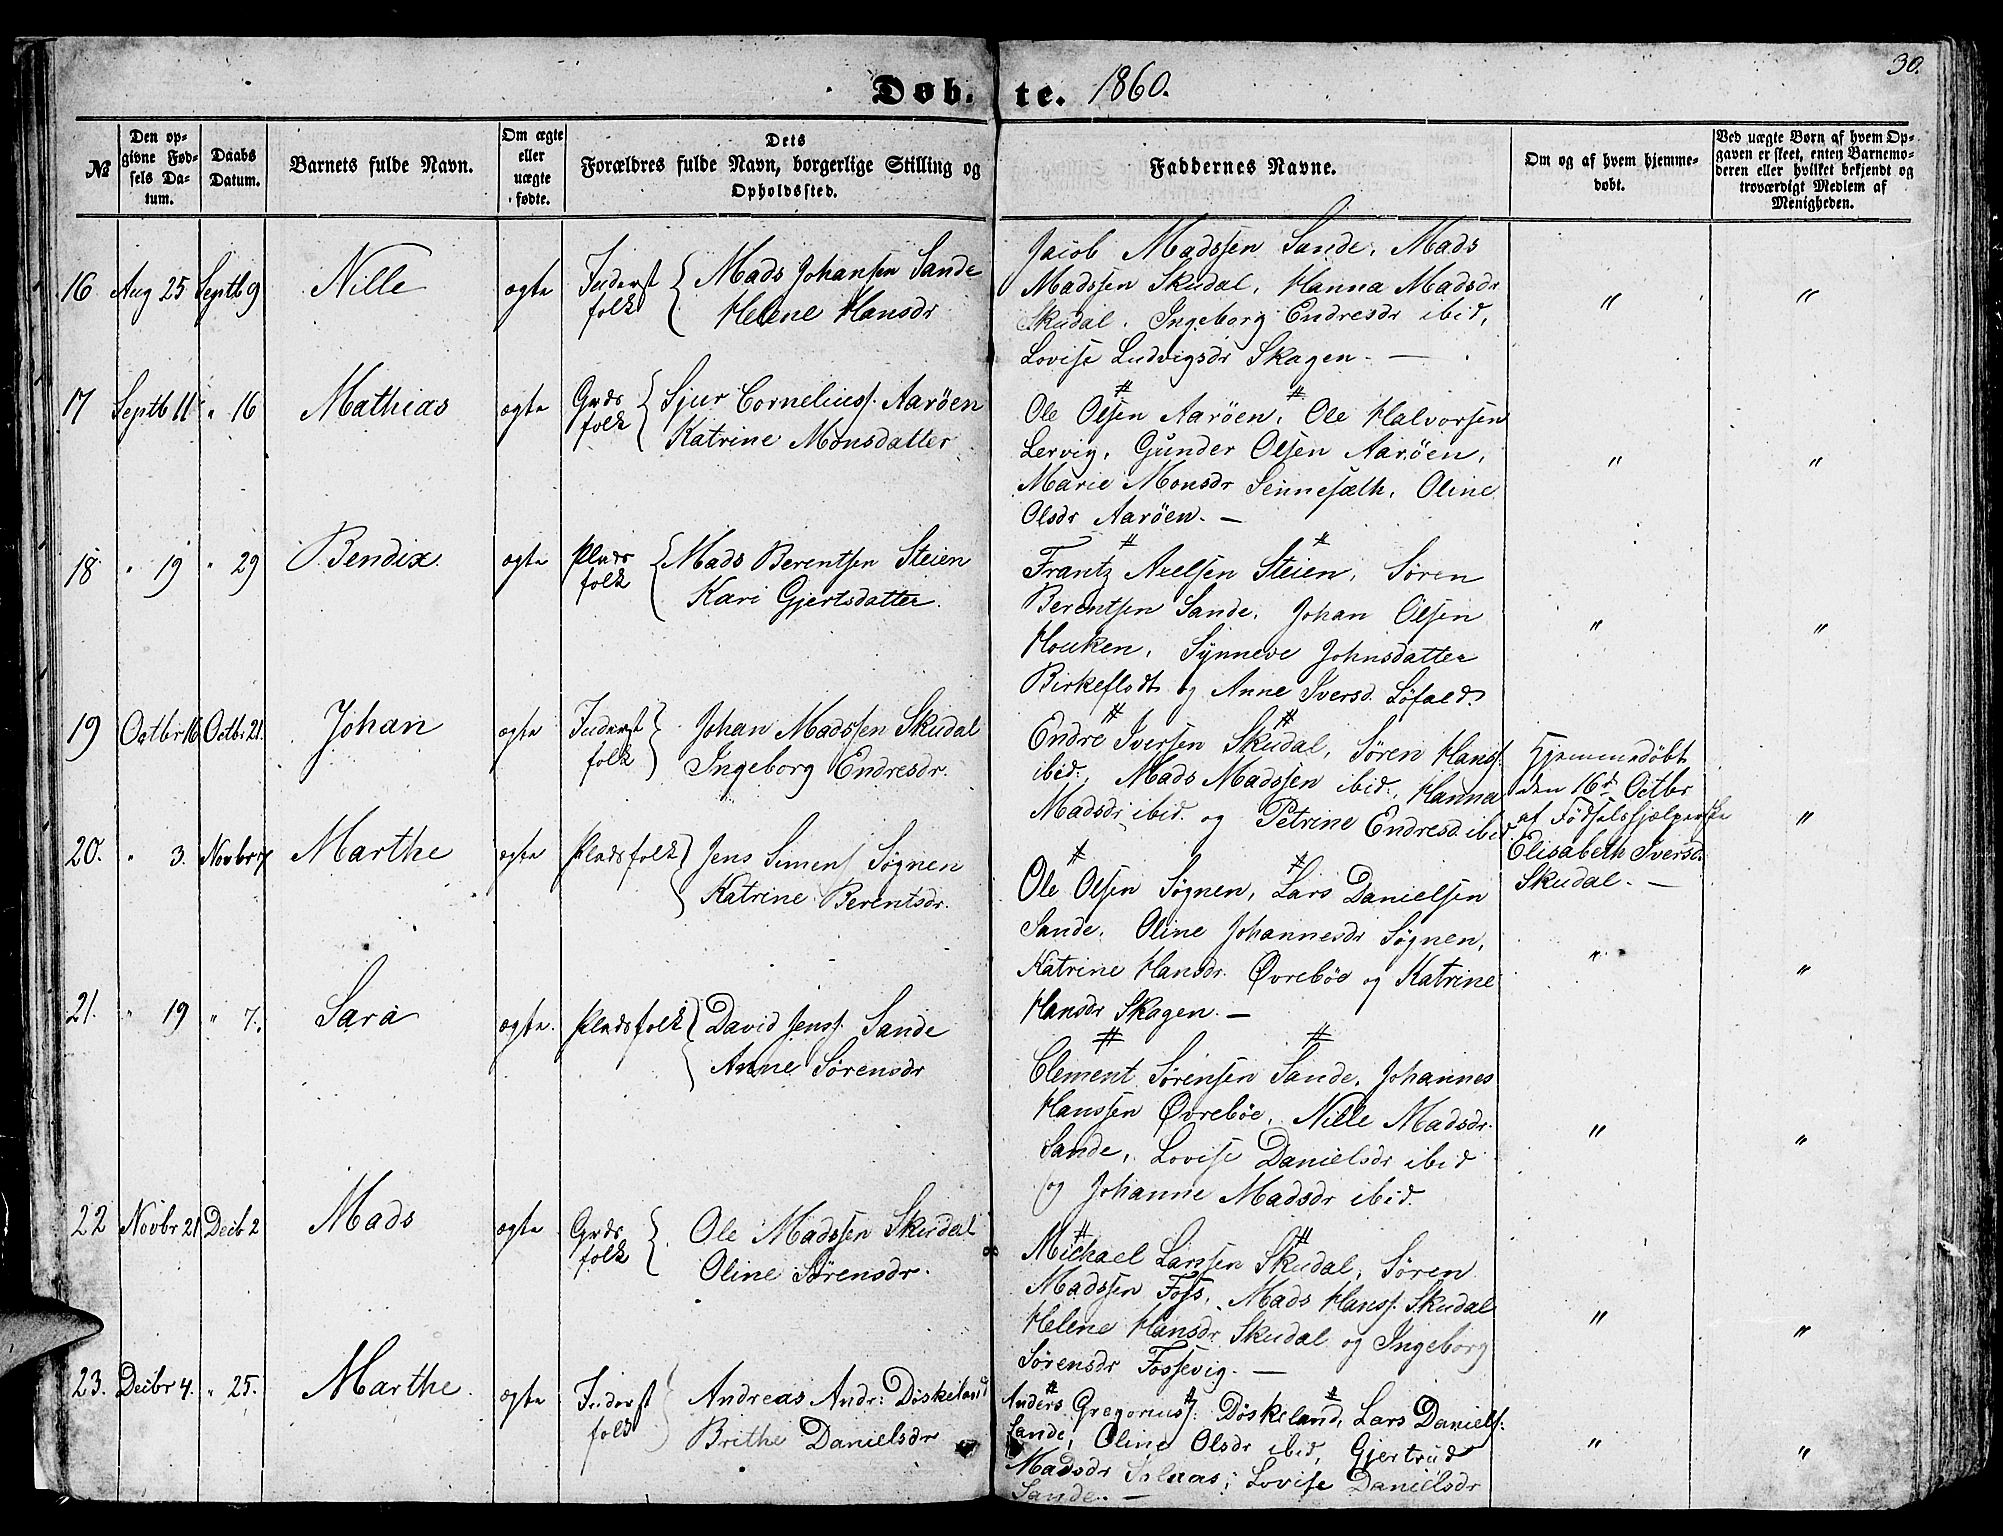 30.
Døb-te. 1860.
№
Den opgivne Fødsels Datum.
Daabs Datum.
Barnets fulde Navn.
Om ægte eller uægte fødte.
Dets Forældres fulde Navn, borgerlige Stilling og Opholdssted.
Faddernes Navne.
Om og af hvem hjemmedøbt.
Ved uægte Børn af hvem Opgaven er skeet, enten Barnemoderen eller hvilket bekjendt og troværdigt Medlem af Menigheden.
16 Aug 25 Septb 9 Nille ægte Inderst folk { Mads Johansen Sande
Helene Hansdr
Jacob Madssen Sande, Mads
Madssen Skudal, Hanna Madsdr
Skudal, Ingeborg Endresdr ibid,
Lovise Ludvigsdr Skagen. —
" "
17 Septb 11 " 16 Mathias ægte Grds folk { Sjur Corneliuss. Aarøen
Katrine Monsdatter
Ole Olsen Aarøen, Ole Halvorsen
Lervig, Gunder Olsen Aarøen,
Marie Monsdr Sennesæth, Oline
Olsdr Aarøen. —
" "
18 " 19 " 29 Bendix ægte Plads folk { Mads Berentsen Steien
Kari Gjertsdatter.
Frantz Axelsen Steien, Søren
Berentsen Sande, Johan Olsen
Houken, Synneve Johnsdatter
Birkeflodt og Anne Iversd. Løfald.
" "
19 Octbr 16 Octbr 21. Johan ægte Inderst folk } Johan Madssen Skudal
Ingeborg Endresdr.
Endre Iversen Skudal, Søren Hanss.
ibid., Mads Madssen ibid., Hanna
Madsdr ibid. og Petrine Endresd. ibid
Hjemmedøbt
den 16d Octbr
af Fødselshjælperske
Elisabeth Iversd.
Skudal. —
"
20. " 3. Novbr 7 Marthe ægte Pladsfolk } Jens Simens Søgnen
Katrine Berentsdr.
Ole Olsen Søgnen, Lars Danielsen
Sande, Oline Johannesdr Søgnen,
Katrine Hansdr. Øvrebøe og Katrine
Hansdr Skagen. —
" "
21. " 19 " 7. Sara ægte. Pladsfolk } David Jenss. Sande
Anne Sørensdr
Clement Sørensen Sande, Johannes
Hanssen Øvrebøe, Nille Madsdr.
Sande, Lovise Danielsdr ibid
og Johanne Madsdr ibid.
" "
22 Novbr 21 Decb 2 Mads ægte Grds folk { Ole Madssen Skudal
Oline Sørensdr.
Michael Larssen Skudal, Søren
Madssen Foss, Mads Hanss. Skudal
Helene Hansdr Skudal og Ingeborg
Sørensdr Fossevig. —
" "
23. Decbr 4. " 25. Marthe. ægte Inderst folk } Andreas Andr: Døskeland
Brithe Danielsdr
Anders Gregoriuss: Døskeland, Lars Daniels:
Sande, Oline Olsdr ibid, Gjertrud
Madsdr Solnas, Lovise Danielsdr
Sande. —
" "